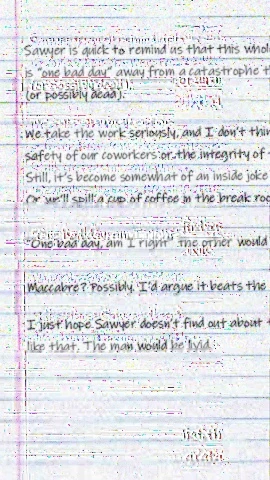 Sawyer is quick to remind us that this whol
is "one bad day" away from a catastrophe t
(or possibly dead).
We take the work seriously, and I don't thin
safety of our coworkers or the integrity of
Still, it's become somewhat of an inside joke
Or we'll spill a cup of coffee in the break roo
"One bad day, am I right" the other would
Maccabre? Possibly. I'd argue it beats the
I just hope Sawyer doesn't find out about t
like that. The man would be livid.